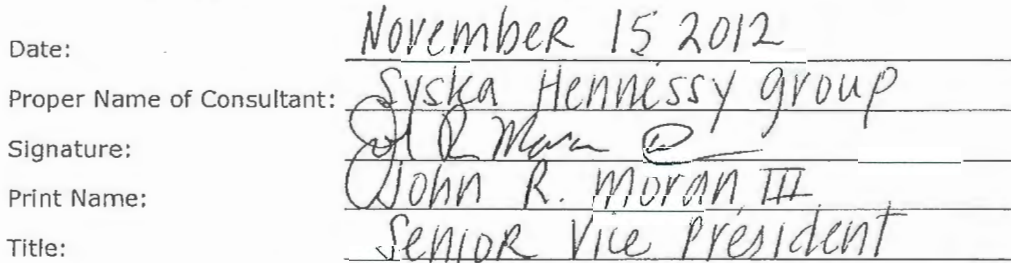 Date: November 15 2012
Proper Name of Consultant: Syska Hennessy group
Signature: John R Moran III
Print Name: John R. Moran III
Title: Senior Vice President